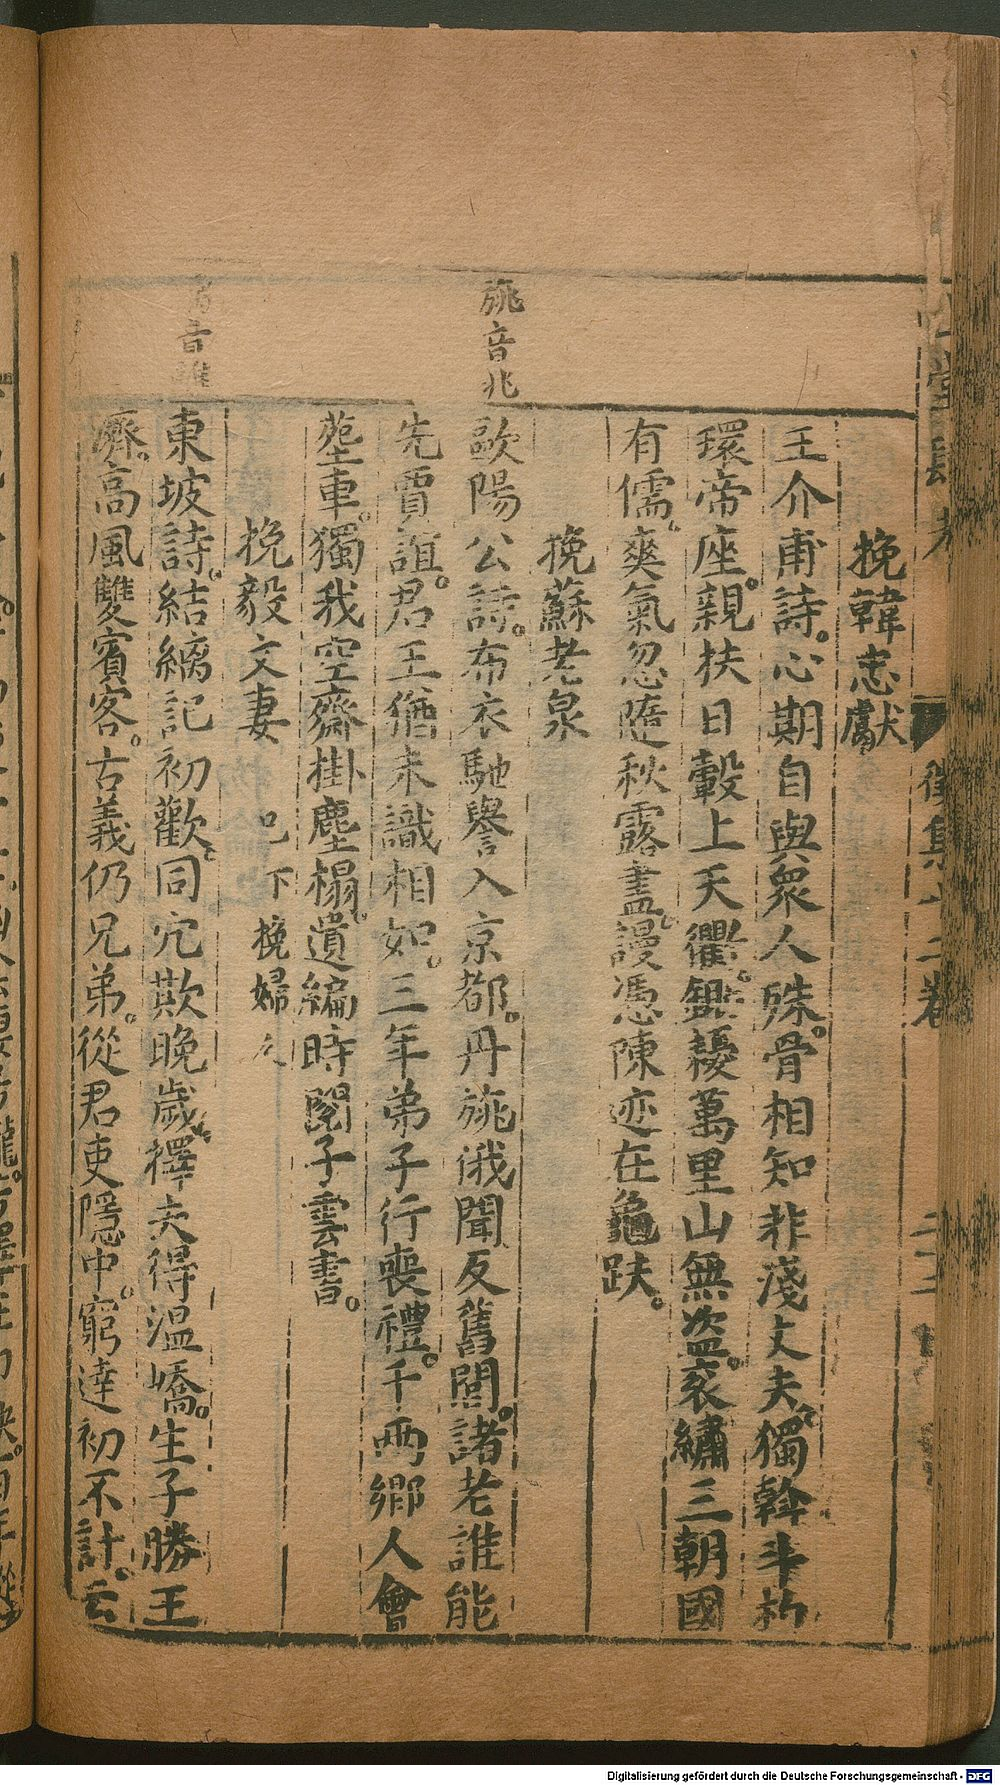 挽韓忠獻
王介甫詩。心期自與衆人殊。骨相知非淺丈夫。獨斡斗杓
環帝座。親扶日轂上天衢。鋤耰萬里山無盜。衮繡三朝國
有儒。爽氣忽隨秋露盡。謾憑陳迹在龜趺。
挽蘇老泉
旐音兆
歐陽公詩。布衣馳譽入京都。丹旐俄聞反舊閭。諸老誰能
先賈誼。君王猶未識相如。三年弟子行喪禮。千兩鄉人會
塟車。獨我空齋掛塵榻。遺編時閱子雲書。
挽毅文妻 已下挽婦人
音離
東坡詩。結縭記初歡。同穴欺晚歲。擇夫得温嶠。生子勝王
濟。高風雙賓客。古義仍兄弟。從君吏隱中。窮達初不計。云
後集 二卷
Digitalisierung gefördert durch die Deutsche Forschungsgemeinschaft - DFG